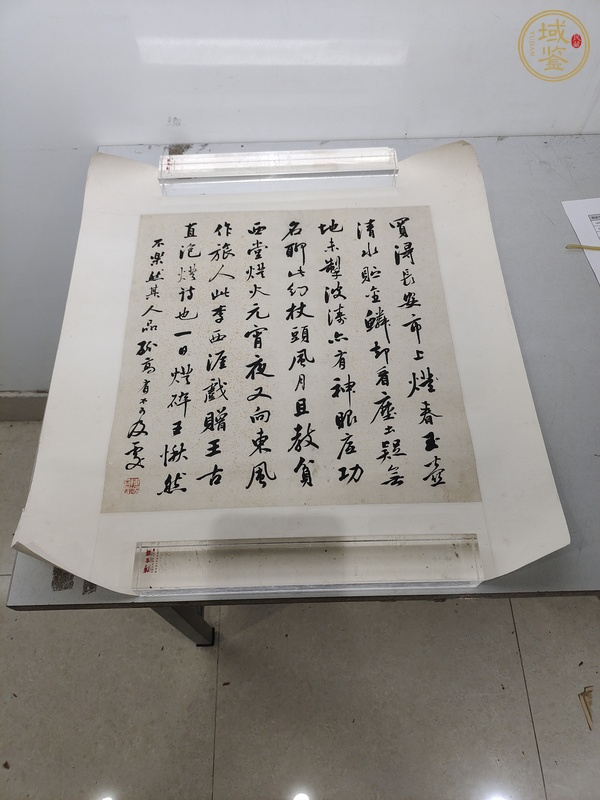 買淂長安市上燈春玉壺
清水貯金鱗却看塵土疑無
地未掣波濤亦有神眼底功
名聊此幻杖頭風月且教貧
西堂燈火元宵夜又向東風
作旅人此李西涯戲贈王古
直泡燈詩也一日燈碎王愀然
不樂然其人品孤高有不可及處
域鑒